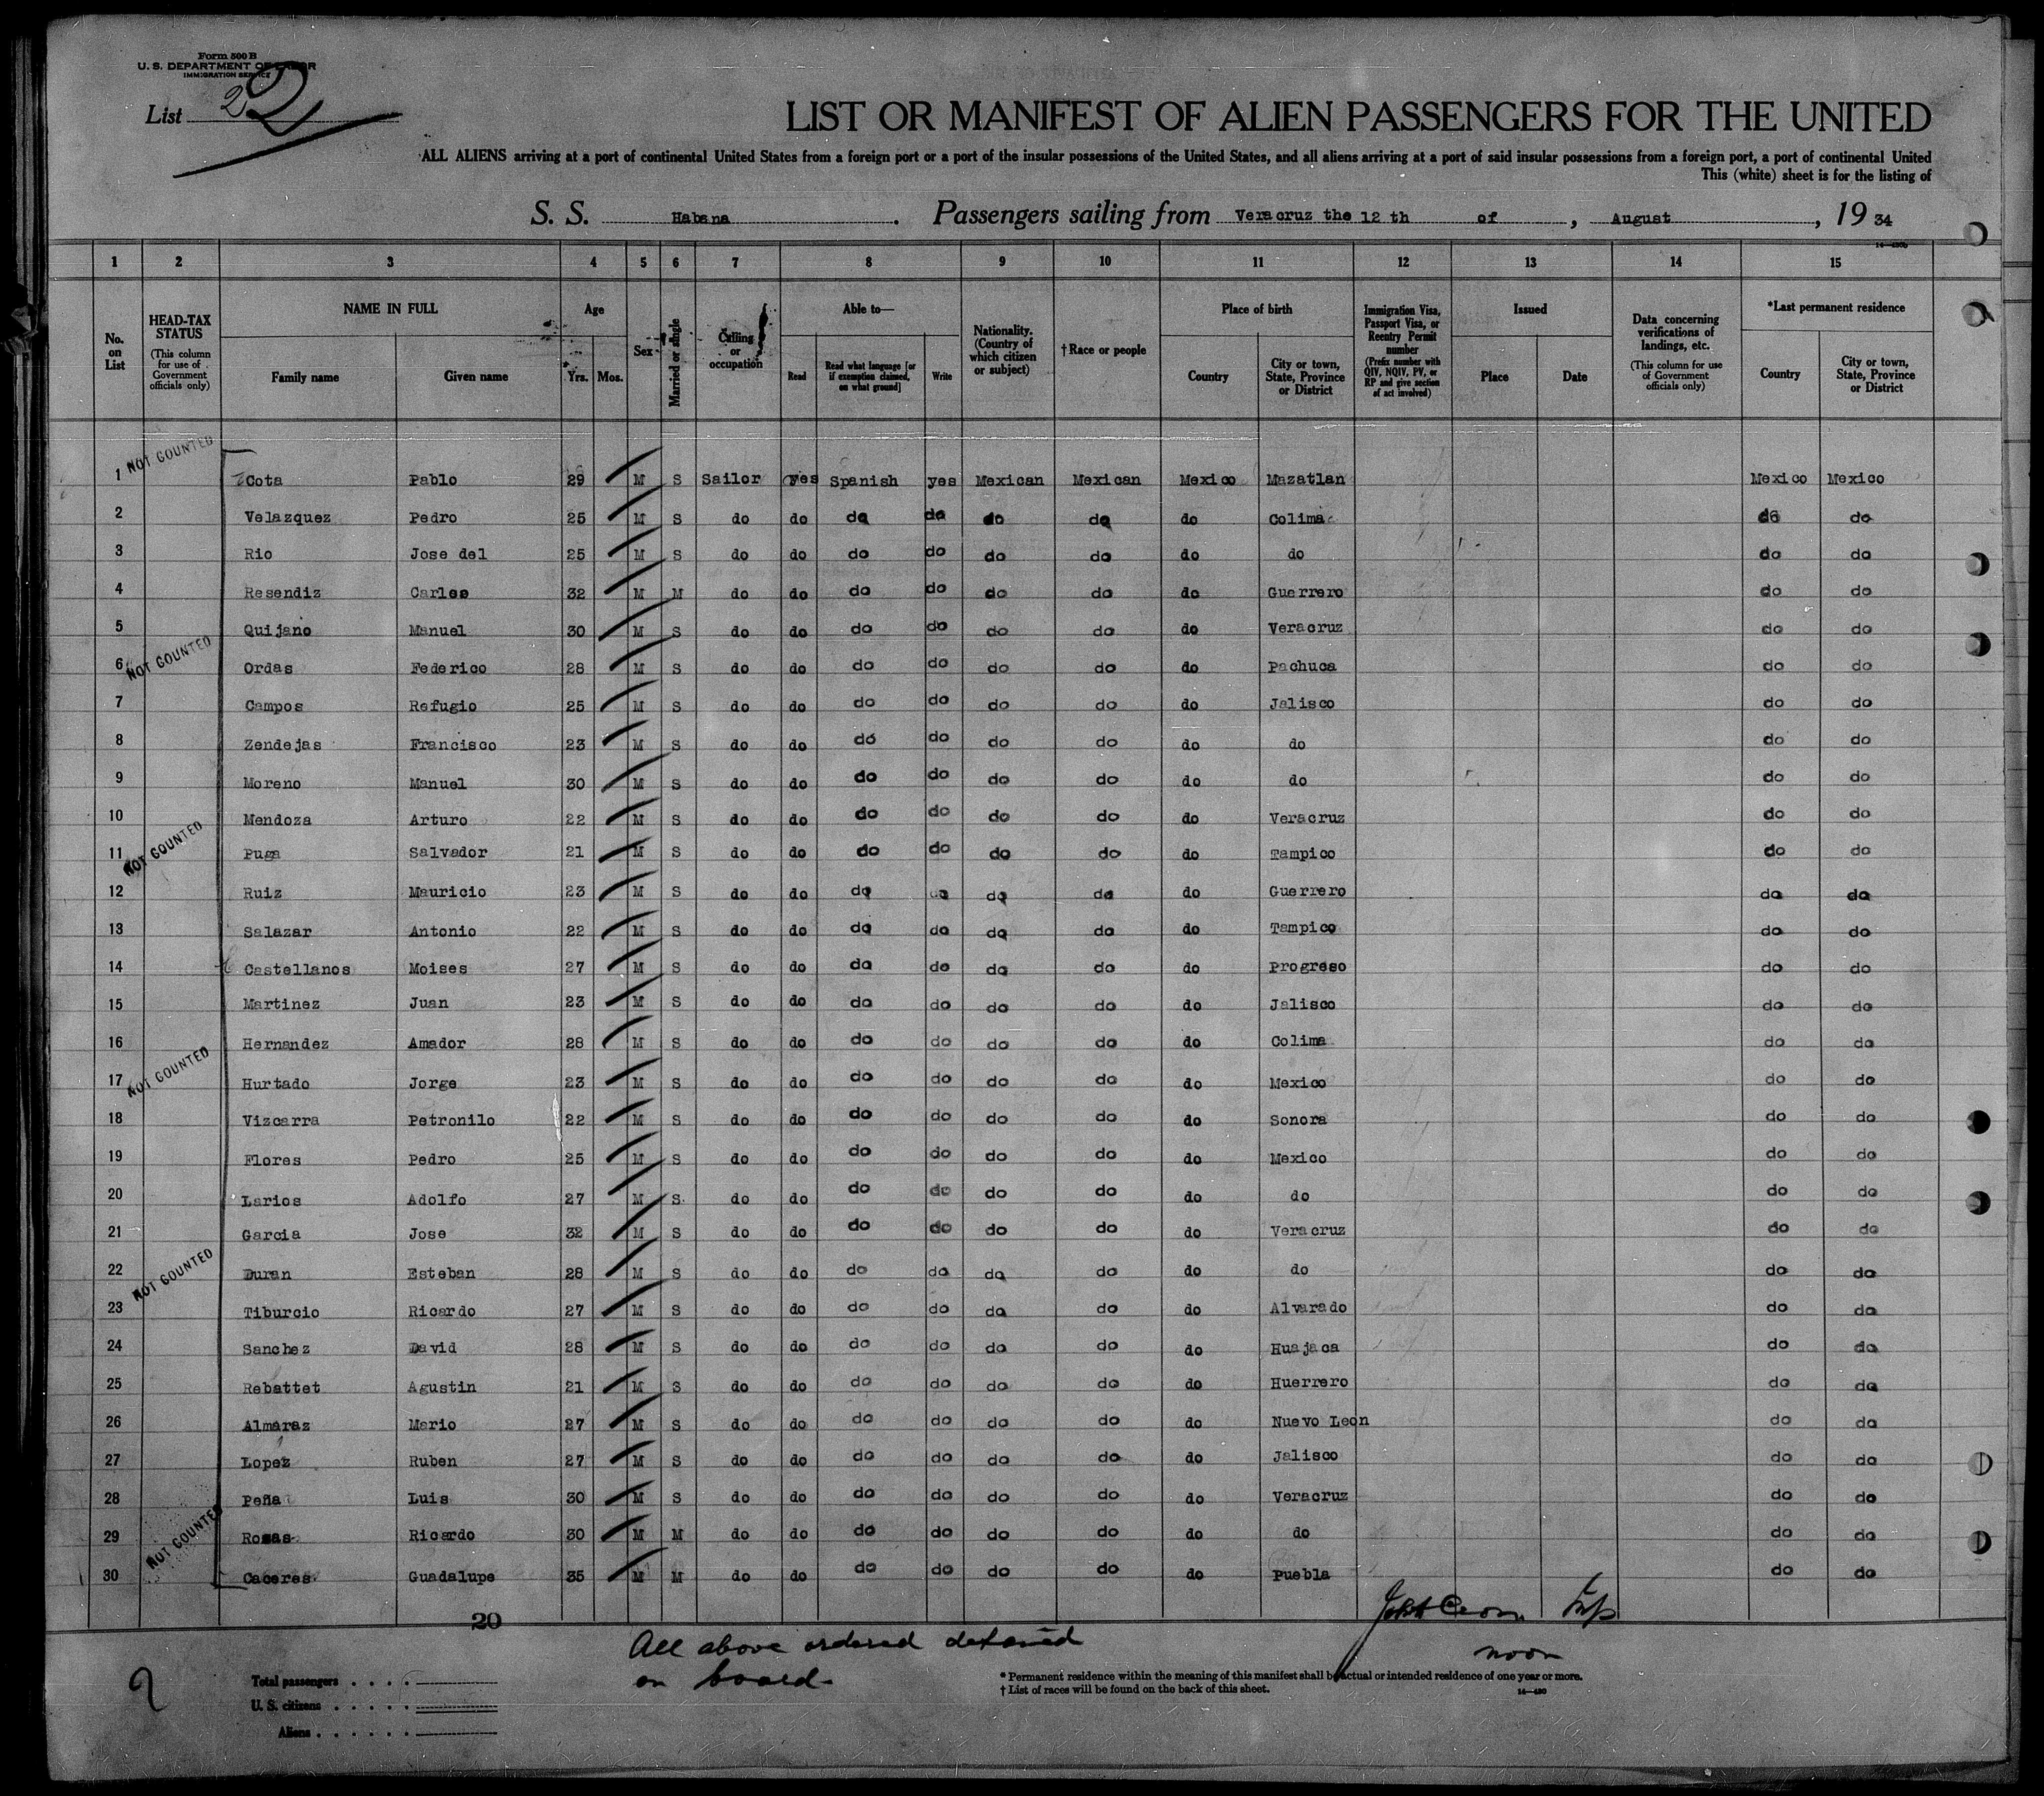 Form 500 B
U. S. DEPARTMENT OF LABOR
IMMIGRATION SERVICE
List 2 2
LIST OR MANIFEST OF ALIEN PASSENGERS FOR THE UNITED
ALL ALIENS arriving at a port of continental United States from a foreign port or a port of the insular possessions of the United States, and all aliens arriving at a port of said insular possessions from a foreign port, a port of continental United
This (white) sheet is for the listing of
S. S. Habana. Passengers sailing from Veracruz the 12 th of, August, 19 34
1 2 3 4 5 6 7 8 9 10 11 12 13 14 15
No. on List
HEAD-TAX STATUS (This column for use of Government officials only)
NAME IN FULL
Family name Given name
Age
Yrs. Mos.
Sex
Married or single
Calling or occupation
Able to—
Read
Read what language [or if exemption claimed, on what ground]
Write
Nationality. (Country of which citizen or subject)
†Race or people
Place of birth
Country
City or town, State, Province or District
Immigration Visa, Passport Visa, or Reentry Permit number (Prefix number with QIV, NQIV, PV, or RP and give section of act involved)
Issued
Place Date
Data concerning verifications of landings, etc. (This column for use of Government officials only)
*Last permanent residence
Country
City or town, State, Province or District
NOT COUNTED
1 Cota Pablo 29 M S Sailor yes Spanish yes Mexican Mexican Mexico Mazatlan Mexico Mexico
2 Velazquez Pedro 25 M S do do do do do do do Colima do do
3 Rio Jose del 25 M S do do do do do do do do do do
4 Resendiz Carlos 32 M M do do do do do do do Guerrero do do
5 Quijano Manuel 30 M S do do do do do do do Veracruz do do
NOT COUNTED
6 Ordas Federico 28 M S do do do do do do do Pachuca do do
7 Campos Refugio 25 M S do do do do do do do Jalisco do do
8 Zendejas Francisco 23 M S do do do do do do do do do do
9 Moreno Manuel 30 M S do do do do do do do do do do
10 Mendoza Arturo 22 M S do do do do do do do Veracruz do do
NOT COUNTED
11 Puga Salvador 21 M S do do do do do do do Tampico do do
12 Ruiz Mauricio 23 M S do do do do do do do Guerrero do do
13 Salazar Antonio 22 M S do do do do do do do Tampico do do
14 Castellanos Moises 27 M S do do do do do do do Progreso do do
15 Martinez Juan 23 M S do do do do do do do Jalisco do do
16 Hernandez Amador 28 M S do do do do do do do Colima do do
NOT COUNTED
17 Hurtado Jorge 23 M S do do do do do do do Mexico do do
18 Vizcarra Petronilo 22 M S do do do do do do do Sonora do do
19 Flores Pedro 25 M S do do do do do do do Mexico do do
20 Larios Adolfo 27 M S do do do do do do do do do do
21 Garcia Jose 32 M S do do do do do do do Veracruz do do
NOT COUNTED
22 Duran Esteban 28 M S do do do do do do do do do do
23 Tiburcio Ricardo 27 M S do do do do do do do Alvarado do do
24 Sanchez David 28 M S do do do do do do do Huajaca do do
25 Rebattet Agustin 21 M S do do do do do do do Huerrero do do
26 Almaraz Mario 27 M S do do do do do do do Nuevo Leon do do
27 Lopez Ruben 27 M S do do do do do do do Jalisco do do
28 Peña Luis 30 M S do do do do do do do Veracruz do do
NOT COUNTED
29 Rosas Ricardo 30 M M do do do do do do do do do do
30 Caceres Guadalupe 35 M M do do do do do do do Puebla do do
20
All above ordered detained
on board.
noon
2
Total passengers
U. S. citizens
Aliens
* Permanent residence within the meaning of this manifest shall be actual or intended residence of one year or more.
† List of races will be found on the back of this sheet.
14—430